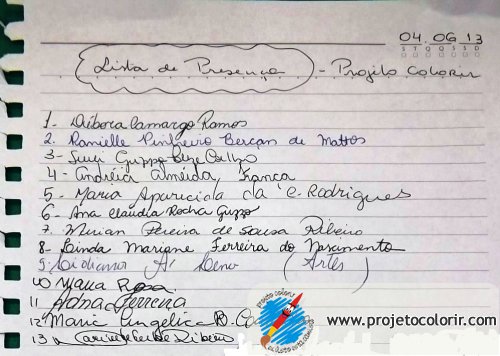 04.06.13
S T Q Q S S D
Lista de Presença - Projeto Colorir
1- Débora Camargo Ramos
2. Ranielle Pinheiro Berçan de Mattos
3- Guzzo
4- Andréia Almeida França
5- Maria Aparecida da C. Rodrigues
6- Ana Claudia Rocha Guzzo
7- Mirian Pereira de Sousa Ribeiro
8- Linda Mariane Ferreira do Nascimento
9- (Artes)
10 Maria Rosa
11 Ferreira
12 Maria Angelica
13 Ribeiro
projeto colorir
www.projetocolorir.com